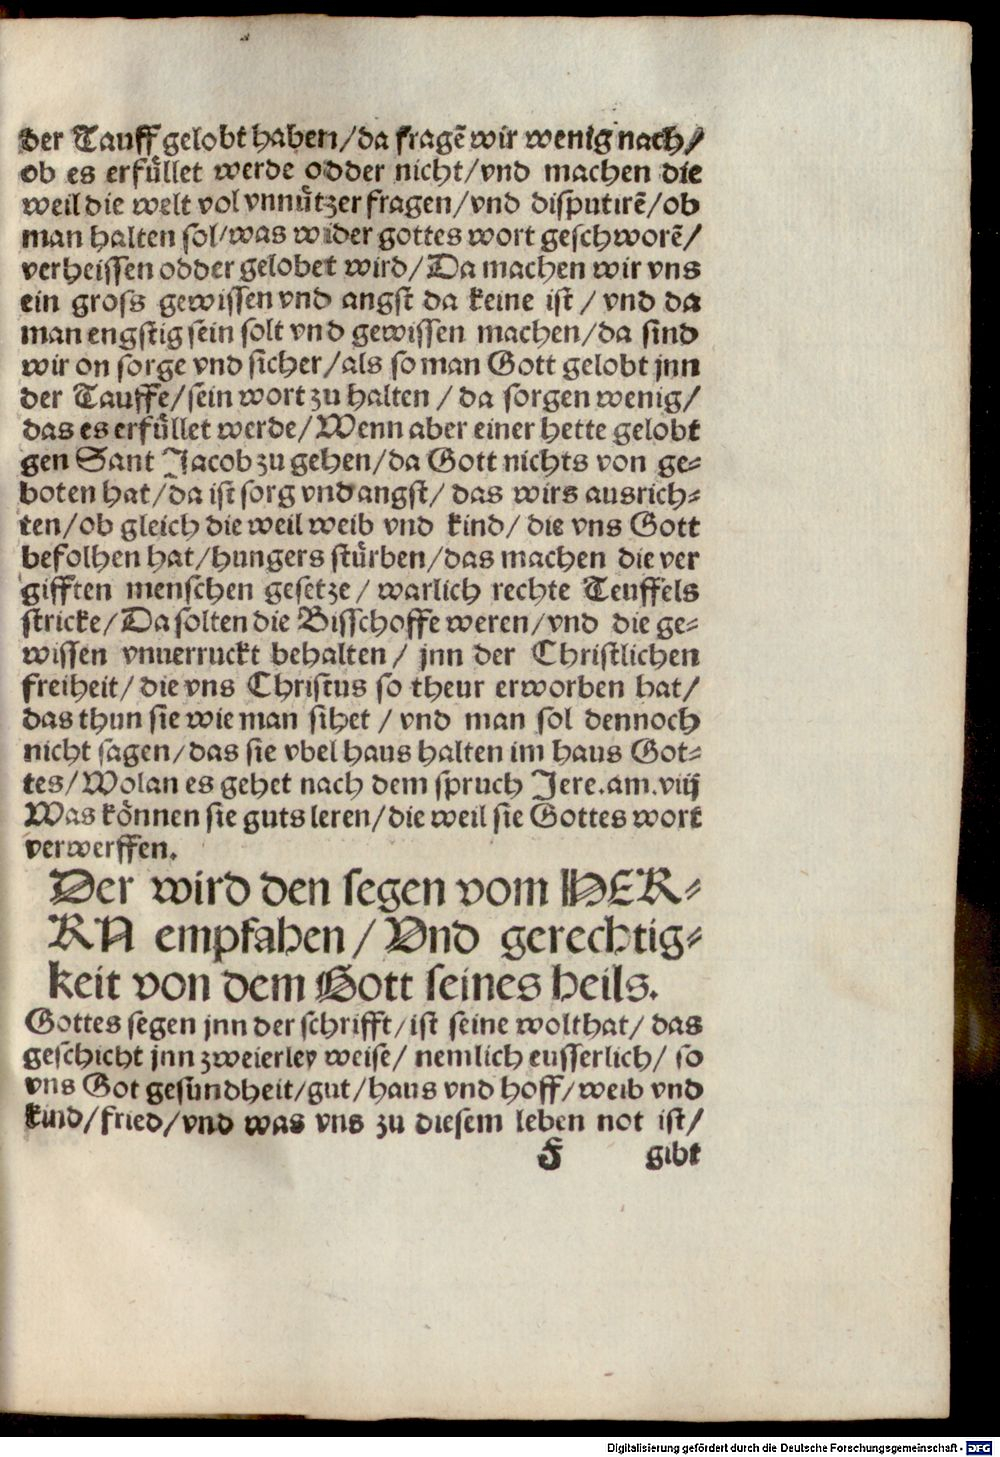 der Tauff gelobt haben/da fragẽ wir wenig nach/
ob es erfüllet werde odder nicht/vnd machen die
weil die welt vol vnnützer fragen/vnd disputirẽ/ob
man halten sol/was wider gottes wort geschworẽ/
verheissen odder gelobet wird/Da machen wir vns
ein gross gewissen vnd angst da keine ist / vnd da
man engstig sein solt vnd gewissen machen/da sind
wir on sorge vnd sicher/als so man Gott gelobt jnn
der Tauffe/sein wort zu halten / da sorgen wenig/
das es erfüllet werde/Wenn aber einer hette gelobt
gen Sant Jacob zu gehen/da Gott nichts von ge⸗
boten hat/da ist sorg vnd angst/ das wirs ausrich⸗
ten/ob gleich die weil weib vnd kind/ die vns Gott
befolhen hat/hungers stürben/das machen die ver
gifften menschen gesetze / warlich rechte Teuffels
stricke/Da solten die Bisschoffe weren/vnd die ge⸗
wissen vnuerruckt behalten / jnn der Christlichen
freiheit/ die vns Christus so theur erworben hat/
das thun sie wie man sihet / vnd man sol dennoch
nicht sagen/das sie vbel haus halten im haus Got⸗
tes/Wolan es gehet nach dem spruch Jere.am.viij
Was können sie guts leren/die weil sie Gottes wort
verwerffen.
Der wird den segen vom HER⸗
RN empfahen / Vnd gerechtig⸗
keit von dem Gott seines heils.
Gottes segen jnn der schrifft/ist seine wolthat/ das
geschicht jnn zweierley weise/ nemlich eusserlich/ so
vns Got gesundheit/gut/haus vnd hoff/weib vnd
kind/fried/vnd was vns zu diesem leben not ist/
F gibt
Digitalisierung gefördert durch die Deutsche Forschungsgemeinschaft - DFG